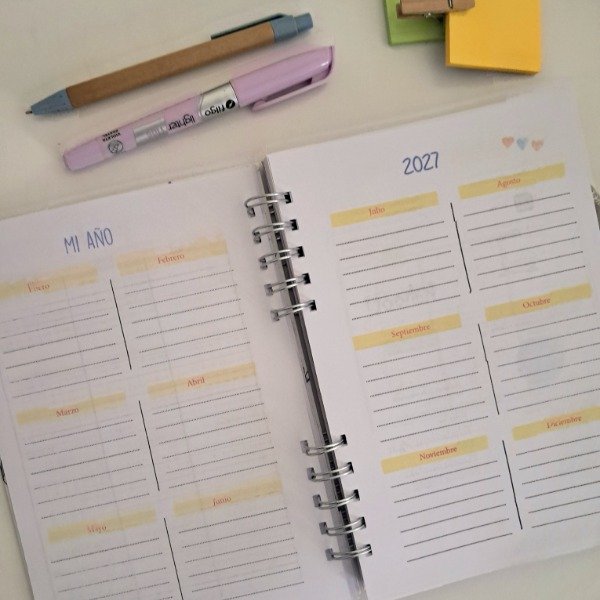 Filgo
lighter
MI AÑO
Enero
Febrero
Marzo
Abril
Mayo
Junio
2027
Julio
Agosto
Septiembre
Octubre
Noviembre
Diciembre